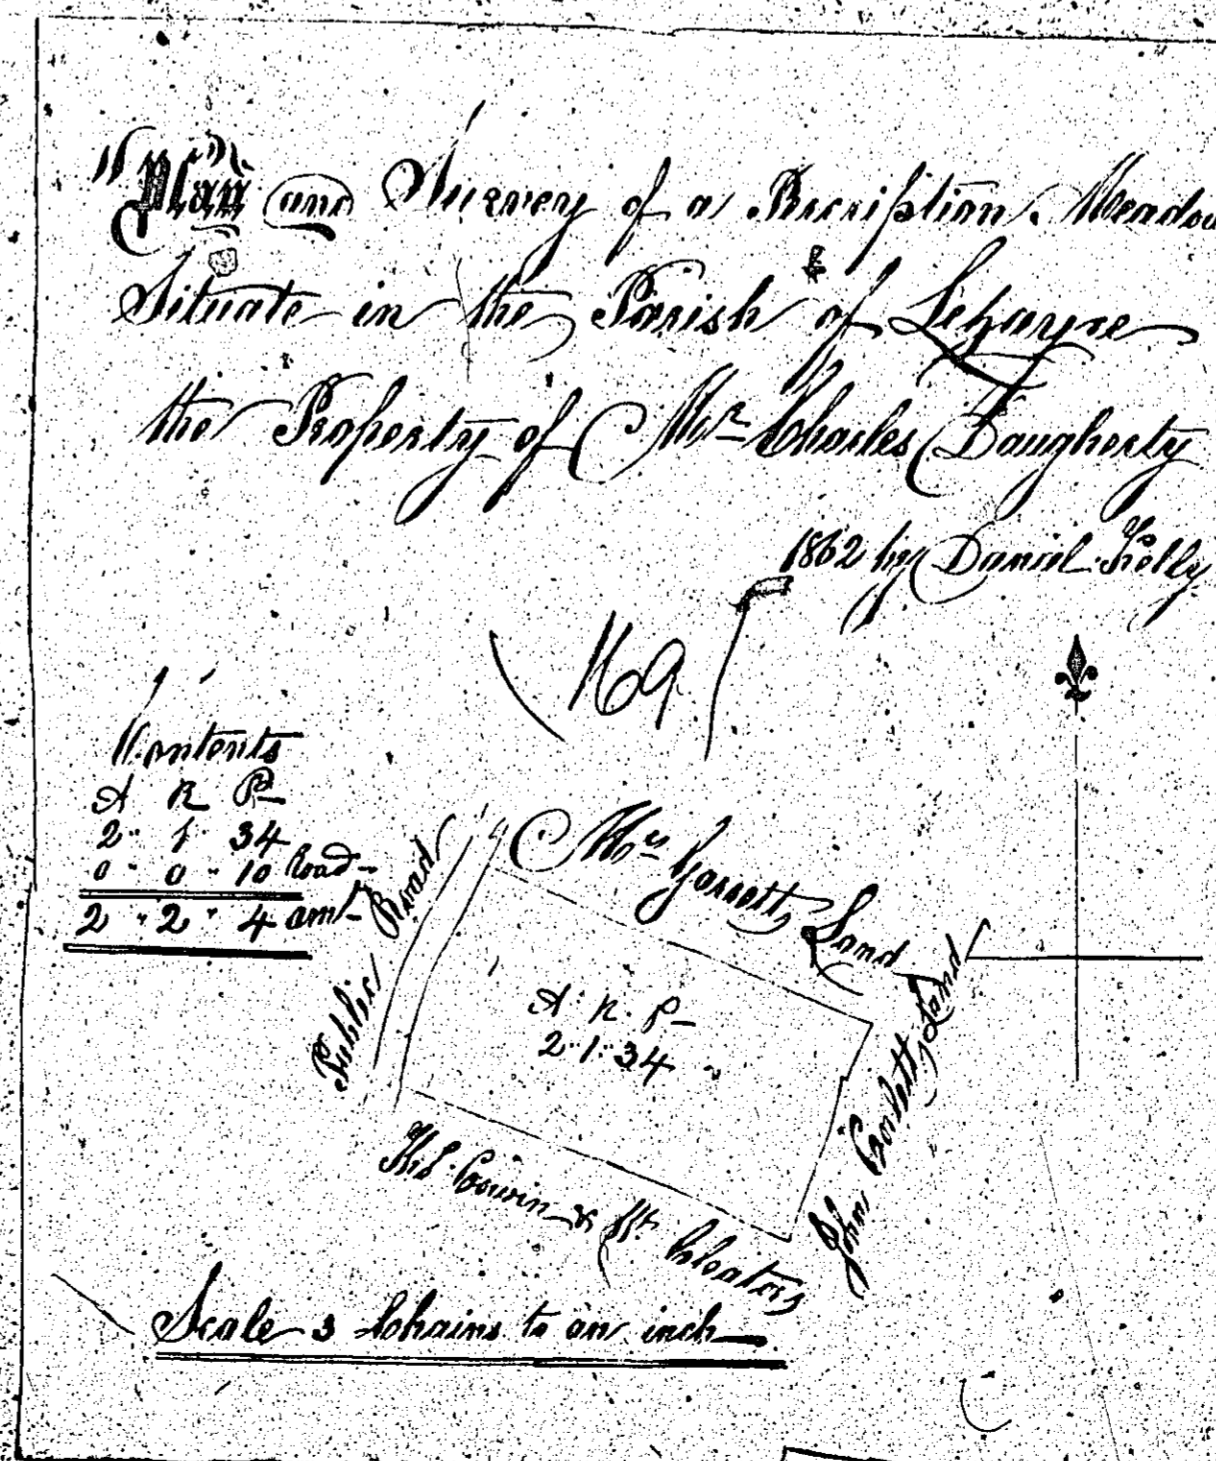 "Plan and Survey of a Meadow
Situate in the Parish of Lezayre
the Property of Mr Charles Daugherty
1862 by Daniel Kelly
169
Contents
A R P
2 " 1 " 34
0 " 0 " 10 Road
2 " 2 " 4 amt
Public Road
Land
A. R. P
2 " 1 " 34
John Land
& Mr
Scale 3 Chains to an inch